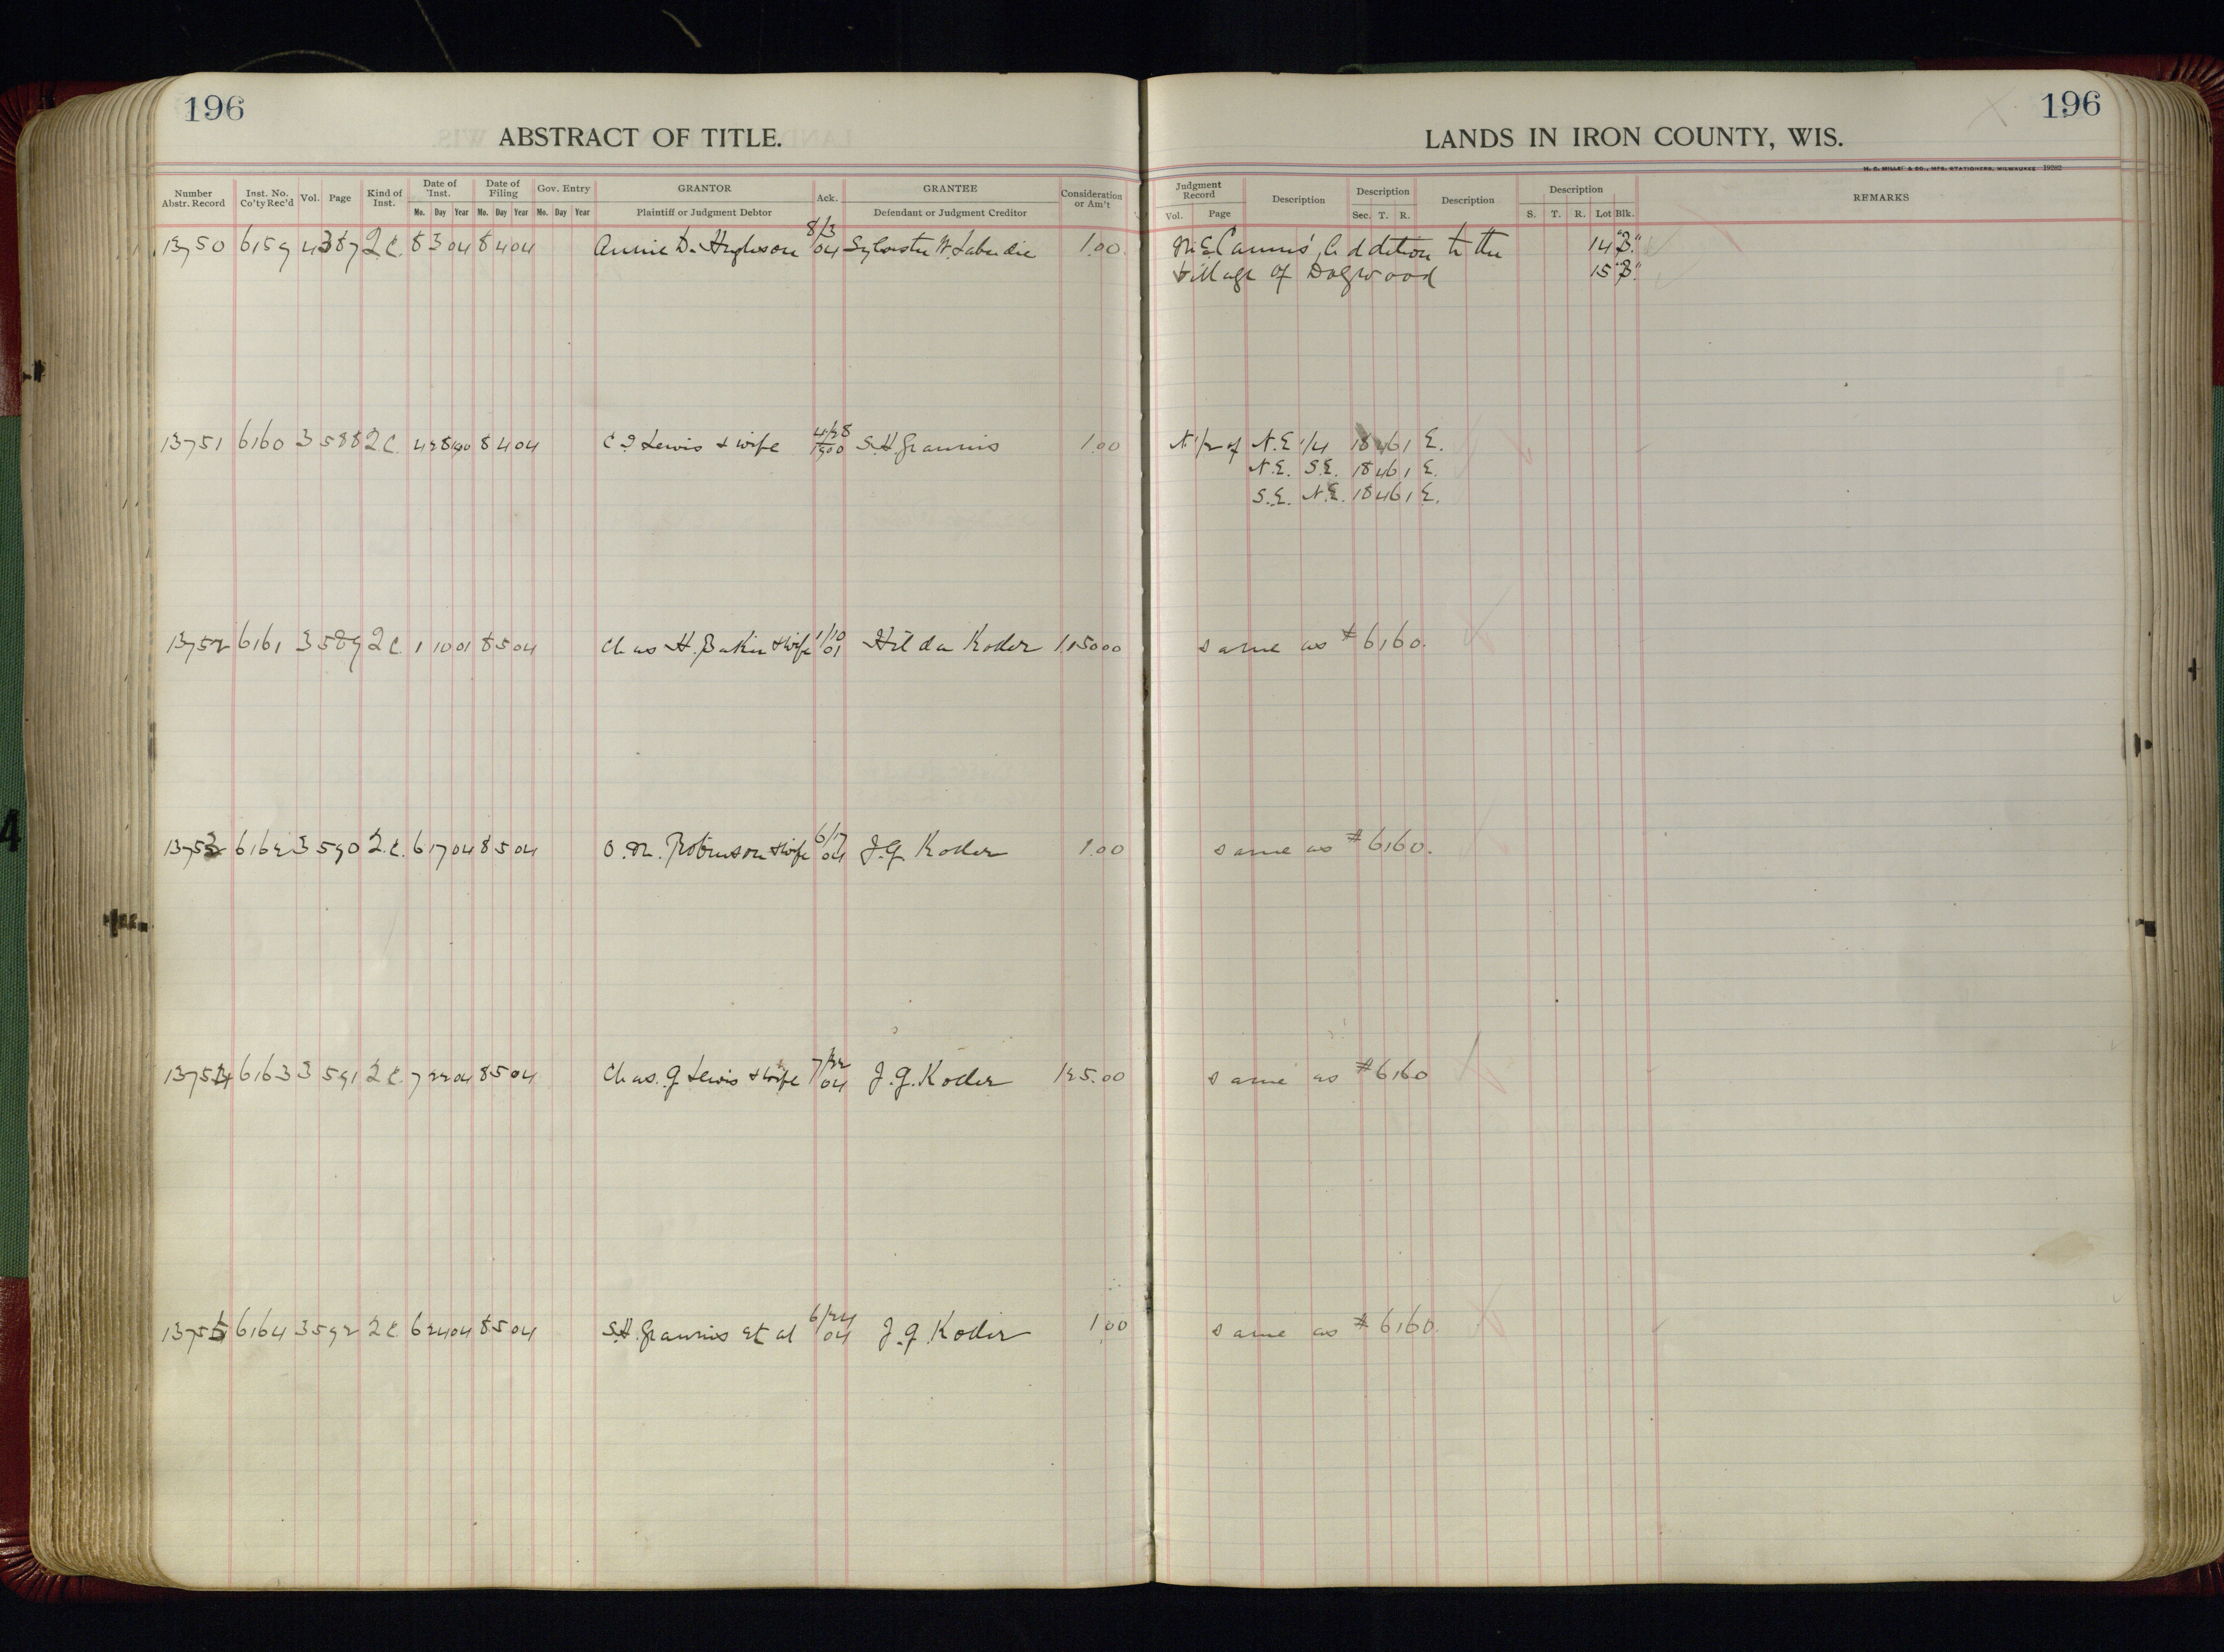 196
ABSTRACT OF TITLE.
Number Abstr. Record Inst. No. Co'ty Rec'd Vol. Page Kind of Inst. Date of Inst. Mo. Day Year Date of Filing Mo. Day Year Gov. Entry Mo. Day Year GRANTOR Plaintiff or Judgment Debtor Ack. GRANTEE Defendant or Judgment Creditor Consideration or Am't
13750 6159 4 387 2.C. 8 3 04 8 4 04 Annie D. Hughson 8/3 04 Sylvester W. Labadie 1.00
13751 6160 3 588 2 C. 4 28 1900 8 4 04 C I Lewis & wife 4/28 1900 S.H. Grannis 1.00
13752 6161 3 589 2 C. 1 10 01 8 5 04 Chas H. Baker & wife 1/10 01 Hilda Koder 1,150 00
13753 6162 3 590 2.C. 6 17 04 8 5 04 O.M. Robinson & wife 6/17 04 J.G. Koder 1.00
13754 6163 3 591 2 C. 7 22 04 8 5 04 Chas. G Lewis & wife 7/22 04 J.G. Koder 125.00
13755 6164 3 592 2 C 6 24 04 8 5 04 S.H. Grannis et al 6/24 04 J.G. Koder 1.00
196
LANDS IN IRON COUNTY, WIS.
H. C. MILLER & CO., MFG. STATIONERS, MILWAUKEE
Judgment Record Vol. Page Description Description Sec. T. R. Description Description S. T. R. Lot Blk. REMARKS
Addition to the 14 "B."
Village of Dogwood 15 "B."
N 1/2 of N.E 1/4 18 46 1 E.
N.E. S.E. 18 46 1 E.
S.E. N.E. 18 46 1 E.
same as #6160.
same as #6160.
same as #6160
same as #6160.
4